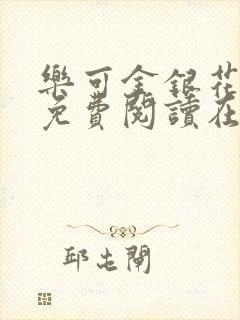 樂可金銀花
免費閱讀在
邱屯閘